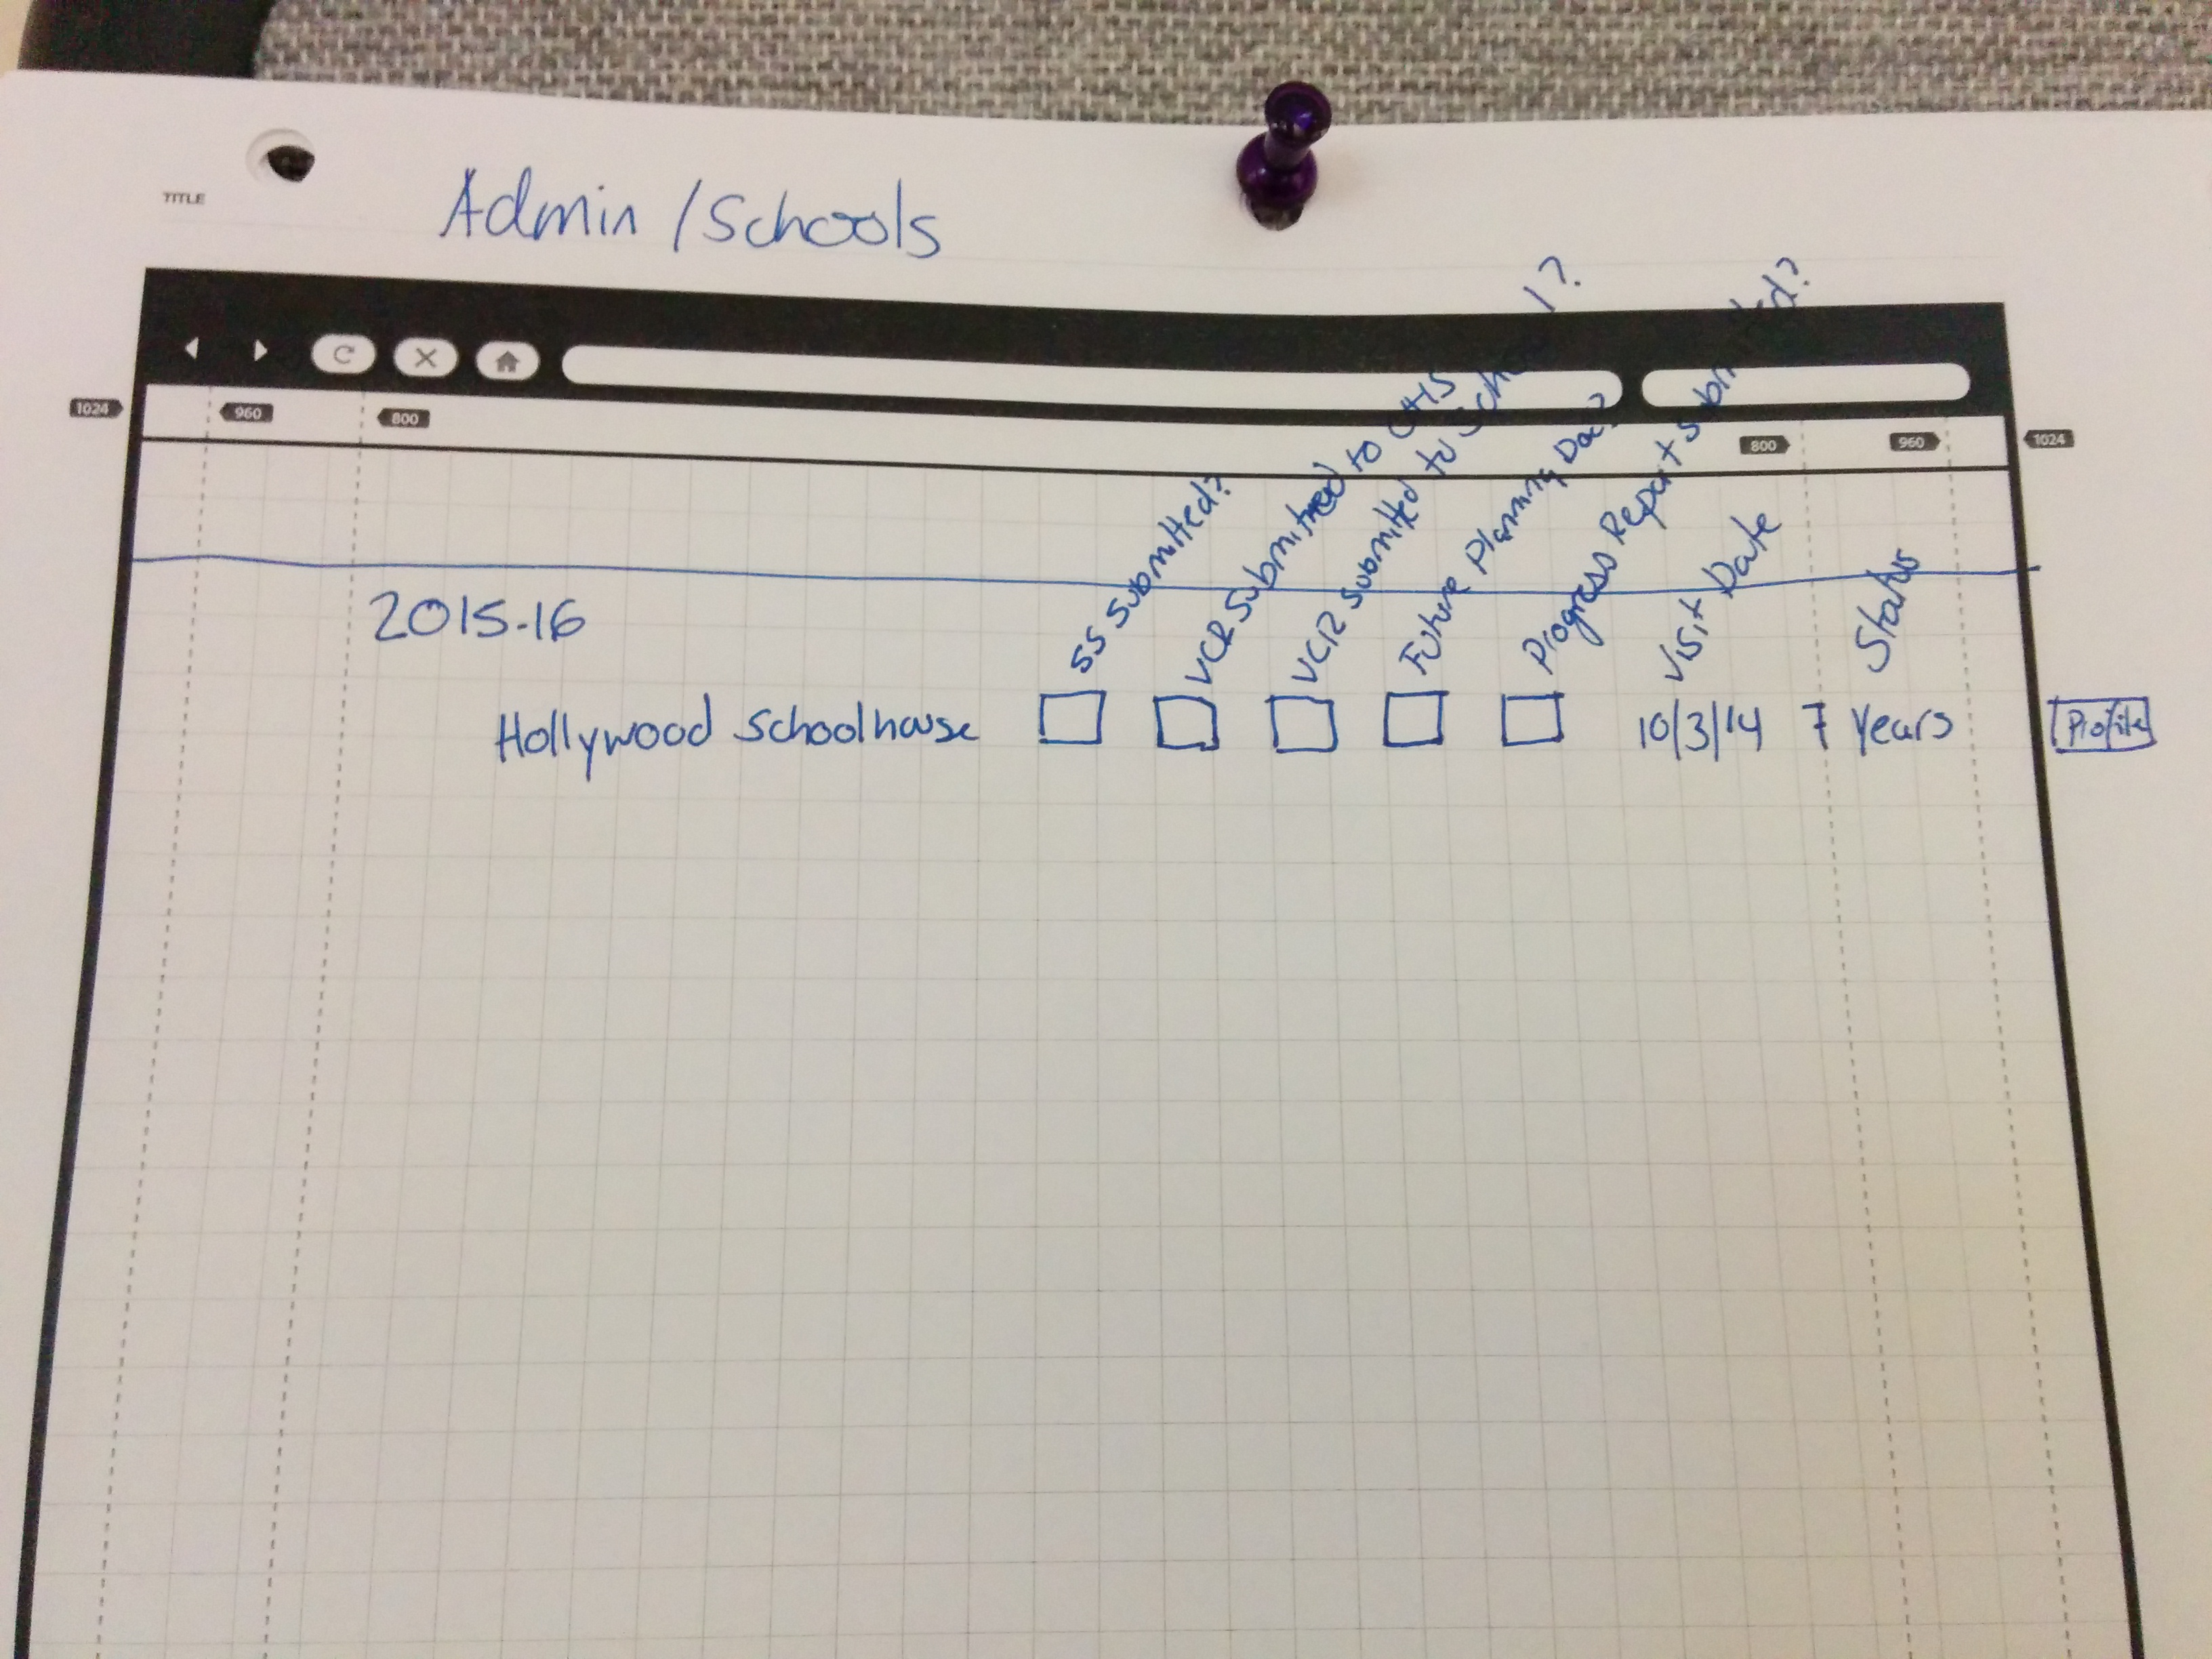 TITLE
Admin / Schools
1024 960 800 800 960 1024
SS Submitted?
VCR Submitted to
VCR Submitted to School?
Future Planning Doc?
Progress Report Submitted?
Visit Date
Status
2015-16
Hollywood Schoolhouse 10/3/14 7 Years Profile